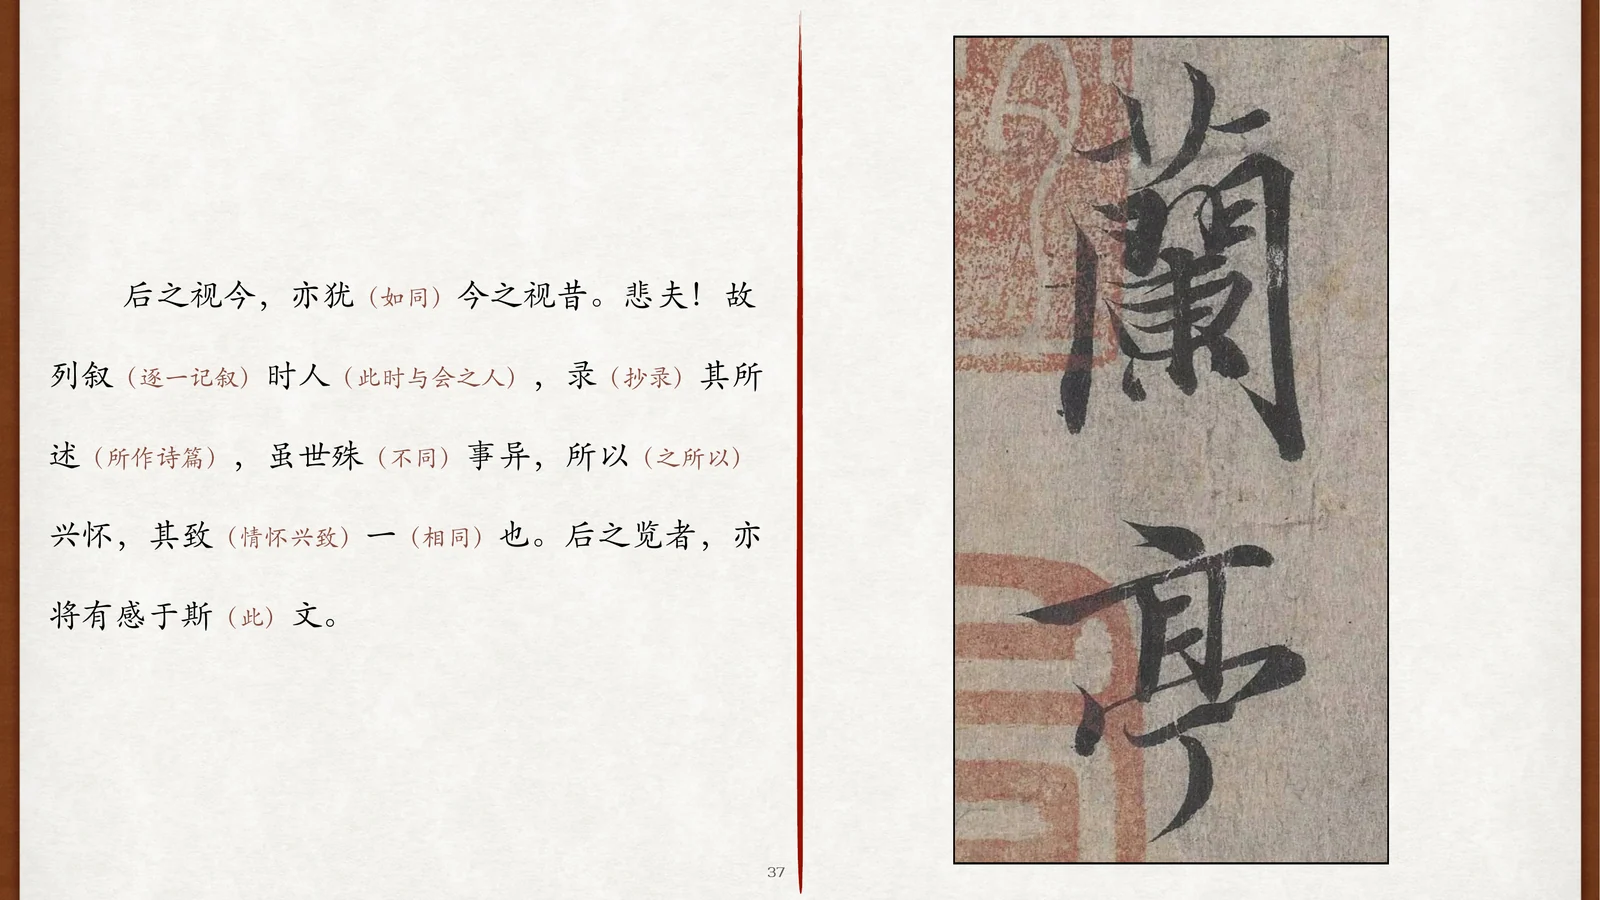 后之视今，亦犹（如同）今之视昔。悲夫！故
列叙（逐一记叙）时人（此时与会之人），录（抄录）其所
述（所作诗篇），虽世殊（不同）事异，所以（之所以）
兴怀，其致（情怀兴致）一（相同）也。后之览者，亦
将有感于斯（此）文。
37
蘭
亭